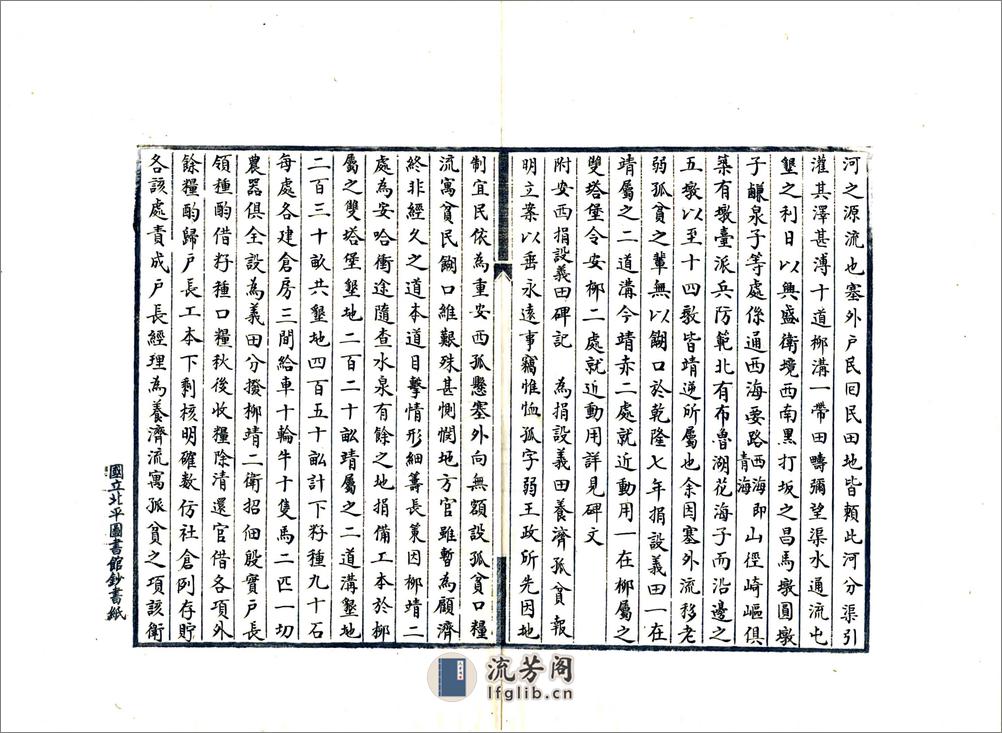 河之源流也塞外户民囙民田地皆賴此河分渠引
灌其澤甚溥十道柳溝一帶田疇彌望渠水通流屯
墾之利日以興盛衛境西南黑打坂之昌馬墩圓墩
子鹻泉子等處係通西海要路西海即青海山徑崎嶇俱
築有墩臺派兵防範北有布魯湖花海子而沿邊之
五墩以至十四墩皆靖逆所屬也余因塞外流移老
弱孤貧之輩無以餬口於乾隆七年捐設義田一在
靖屬之二道溝今靖赤二處就近動用一在柳屬之
雙塔堡令安柳二處就近動用詳見碑文
附安西捐設義田碑記 為捐設義田養濟孤貧報
明立案以垂永遠事竊惟恤孤字弱王政所先因地
制宜民依為重安西孤懸塞外向無額設孤貧口糧
流寓貧民餬口維艱殊甚惻憫地方官雖暫為顧濟
終非經久之道本道目擊情形細籌長策因柳靖二
處為安哈衝途隨查水泉有餘之地捐備工本於柳
屬之雙塔堡墾地二百二十畝靖屬之二道溝墾地
二百三十畝共墾地四百五十畝計下籽種九十石
每處各建倉房三間給車十輪牛十隻馬二匹一切
農器俱全設為義田分撥柳靖二衛招佃殷實户長
領種酌借籽種口糧秋後收糧除清還官借各項外
餘糧酌歸户長工本下剩核明確數仿社倉例存貯
各該處責成户長經理為養濟流寓孤貧之項該衛
國立北平圖書館鈔書紙
流芳阁
lfglib.cn